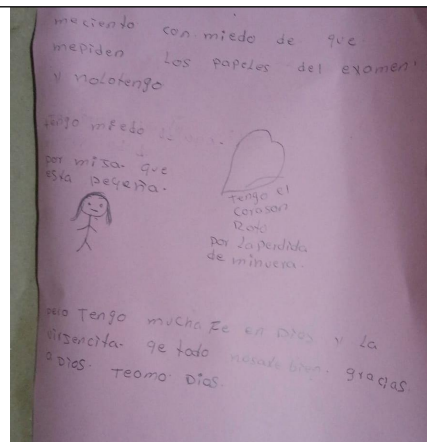 maciento con miedo de que
mepiden Los papeles del examen
y nolotengo
tengo miedo
por misa que
esta peqeña.
Tengo el
corason
Roto
por la perdida
de minuera.
pero Tengo mucha Fe en Dios y La
virsencita. qe todo bien. gracias
a Dios. Teamo Dios.